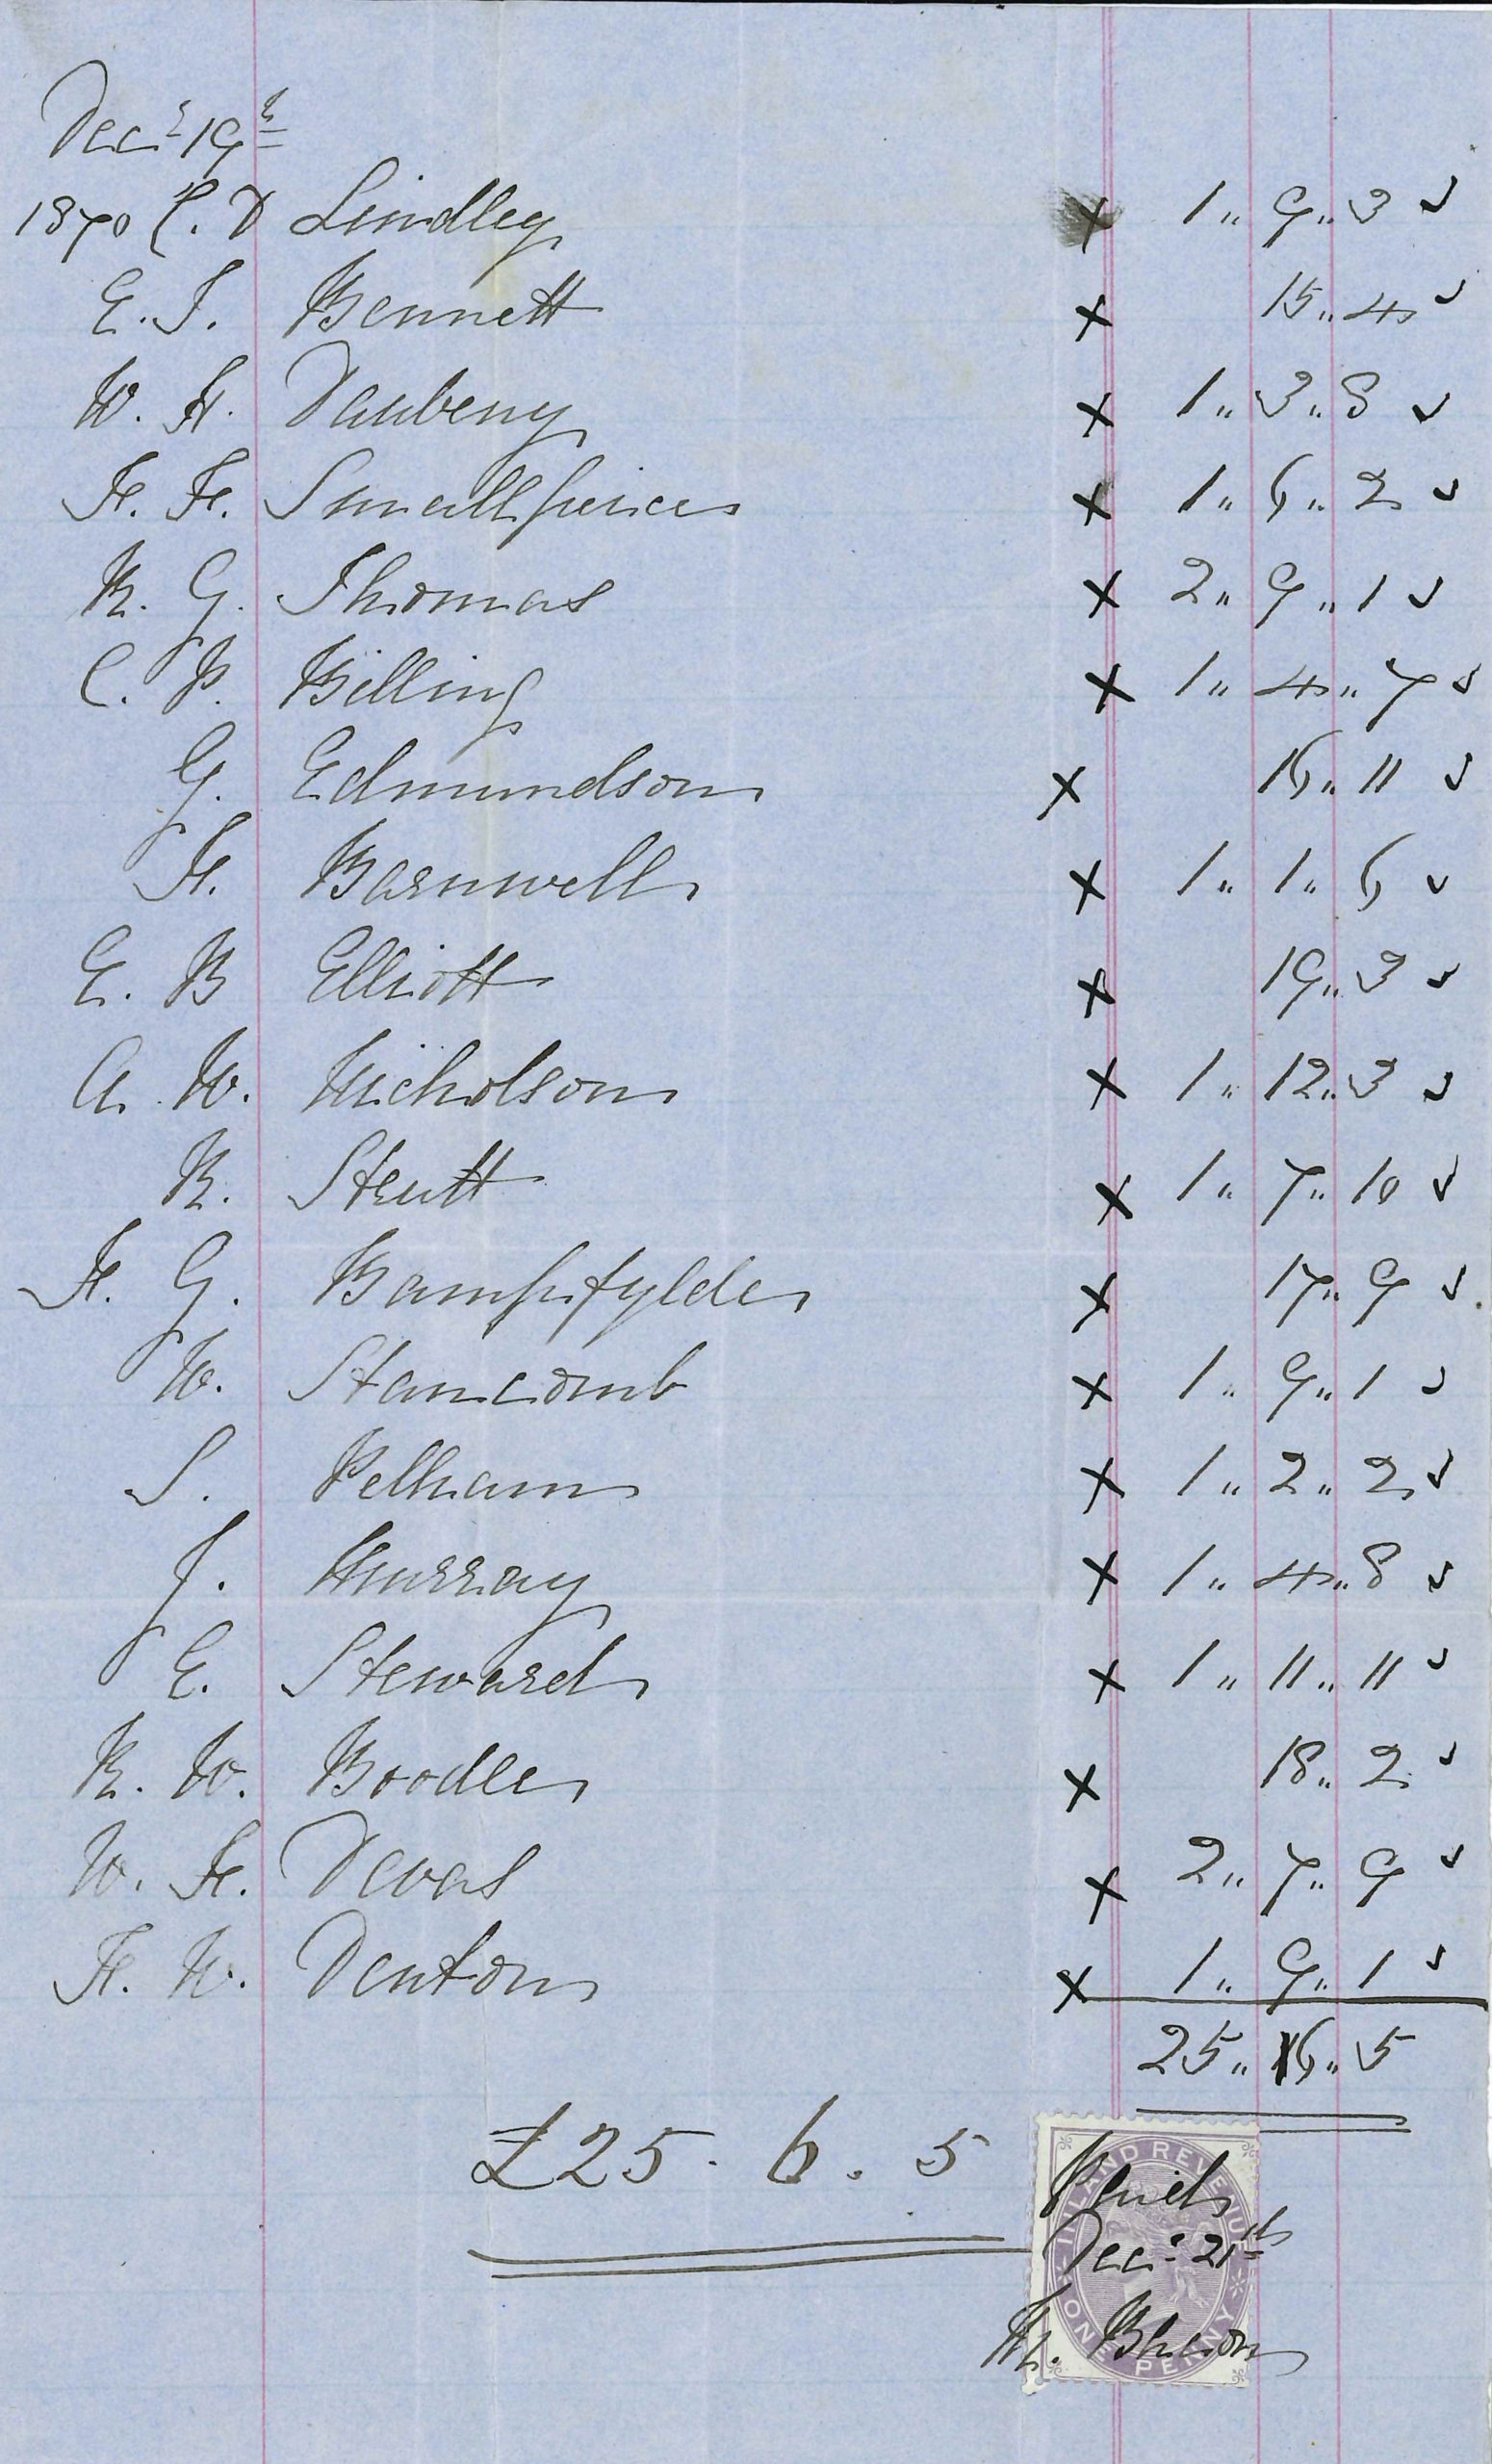 Decr 19th
1870 C. D Lindley x 1 „ 9 „ 3 ✓
E. J. Bennett x 15 „ 4 ✓
W. H. Daubeny x 1 „ 3 „ 8 ✓
F. F. Smallpeice x 1 „ 6 „ 2 ✓
R. G. Thomas x 2 „ 9 „ 1 ✓
C. P. Billing x 1 „ 4 „ 7 ✓
G. Edmundson x 16 „ 11 ✓
F. Barnwell x 1 „ 1 „ 6 ✓
E. B Elliott x 19 „ 3 ✓
A. W. Nicholson x 1 „ 12 „ 3 ✓
R. Strutt x 1 „ 7 „ 10 ✓
F. G. Bampfylde x 17 „ 9 ✓
W. Stancomb x 1 „ 9 „ 1 ✓
S. Pelham x 1 „ 2 „ 2 ✓
J. Murray x 1 „ 4 „ 8 ✓
E. Steward x 1 „ 11 „ 11 ✓
R. W. Boodle x 18 „ 2 ✓
W. F. Devas x 2 „ 7 „ 9 ✓
F. W. Denton x 1 „ 9 „ 1 ✓
25 „ 6 „ 5
£25 . 6 . 5
INLAND REVENUE
ONE PENNY
Paid
Decr 21th